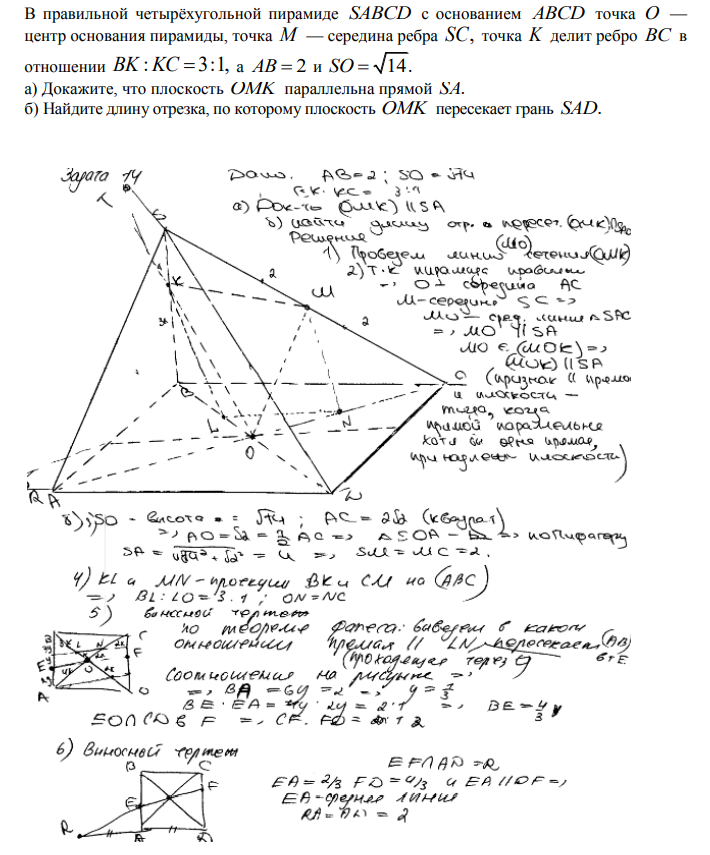 В правильной четырёхугольной пирамиде SABCD с основанием ABCD точка O —
центр основания пирамиды, точка M — середина ребра SC, точка K делит ребро BC в
отношении BK : KC = 3:1, а AB = 2 и SO = √14.
а) Докажите, что плоскость OMK параллельна прямой SA.
б) Найдите длину отрезка, по которому плоскость OMK пересекает грань SAD.
Задача 14
Дано. AB=2; SO=√14
KC = 3:1
а) Док-ть (OMK) || SA
б) найти длину отр.
Решение
(MO)
1) Проведем линию сечения (OMK)
2) Т.к пирамида
O середина AC
M-середина SC =>
MO - сред. линия △SAC
=> MO || SA
MO ∈ (MOK) =>
(MOK) || SA
(признак ||
и плоскости –
тогда, когда
прямой параллельна
хотя бы одна прямая,
плоскости)
S
K
M
2
2
B
C
L
N
O
R A
SO - высота = √14; AC = 2√2 (квадрат)
=> AO = √2 = ½ AC => △SOA => по Пифагору
= 4 => SM = MC = 2.
4) KL и MN - проекции BK и CM на (ABC)
=> BL:LO = 3:1; ON=NC
5) выносной чертеж
по теореме Фалеса: выведем в каком
отношении прямая || LN пересекает (AB)
(проходящая через O) в т E
Соотношение на рисунке =>
=> BA = 6y = 2 => y = 1/3
BE : EA = 4y : 2y = 2:1 => BE = 4/3
в F => CF : FD =
6) Выносной чертеж
B C
E F
R A
EF∩AD = R
EA = 2/3 FD = 4/3 и EA || DF =>
EA-средняя линия
RA = AD = 2